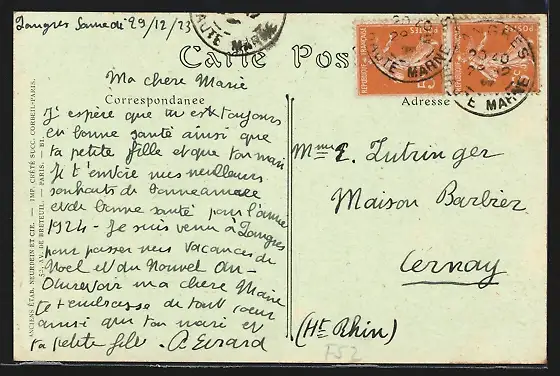 Langres Samedi 29/12/23
HAUTE MARNE
Carte Pos
Ma chère Marie
Correspondance
Adresse
J'espère que tu es toujours
en bonne santé ainsi que
ta petite fille et que ton mari
Je t'envoie mes meilleurs
souhaits de bonne année
et de bonne santé pour l'année
1924 - Je suis venu à Langres
pour passer mes vacances de
Noel et du Nouvel An -
Au revoir ma chère Marie
je t'embrasse de tout coeur
ainsi que ton mari et
ta petite fille. A Evrard
Mme E. Lutringer
Maison Barbier
Cernay
(Ht Rhin)
F52
ANCIENS ÉTAB. NEURDEIN ET CIE. — IMP. CRÉTÉ SUCC. CORBEIL-PARIS.
52, AV. DE BRETEUIL. — PARIS. —
REPUBLIQUE FRANÇAISE
POSTES
5c
HAUTE MARNE
POSTES
5c
HAUTE MARNE